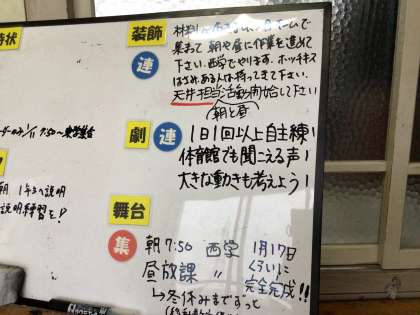 装飾
集まって 朝や昼に作業を進めて
下さい。西学でやります。ホッチキス
はさみ、ある人は持ってきて下さい。
天井担当活動開始して下さい
朝と昼
連
劇
連
1日1回以上自主練!
体育館でも聞こえる声!
大きな動きも考えよう!
舞台
集
朝7:50 西学 1月17日
昼放課 〃 くらいに
完全完成!!
↳冬休みまでずっと
状
7:50〜
朝 1年3へ説明
説明練習を!